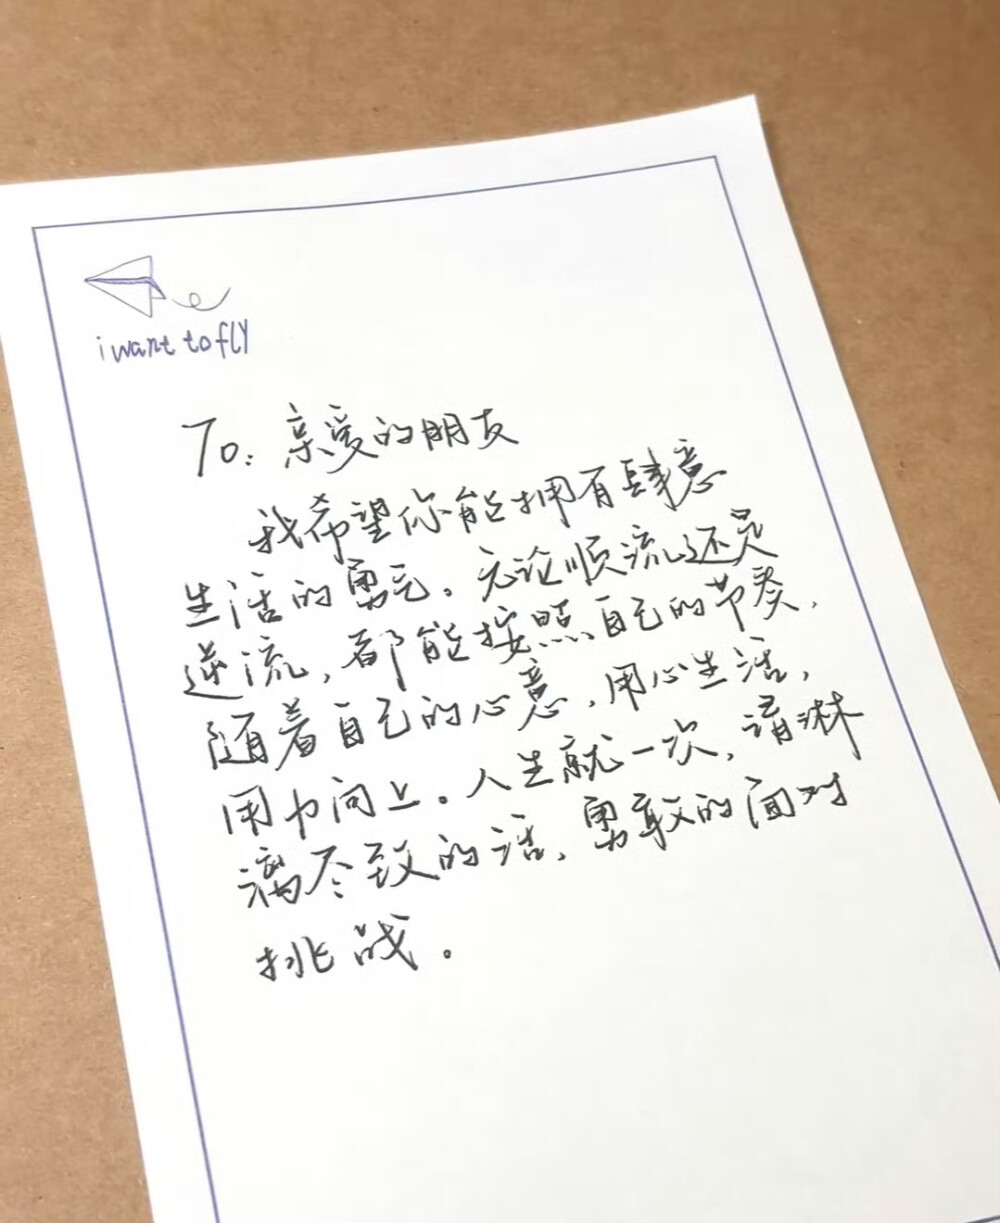 i want to fly
To: 亲爱的朋友
我希望你能拥有肆意
生活的勇气。无论顺流还是
逆流,都能按照自己的节奏,
随着自己的心意,用心生活,
用力向上。人生就一次,请淋
漓尽致的活,勇敢的面对
挑战。